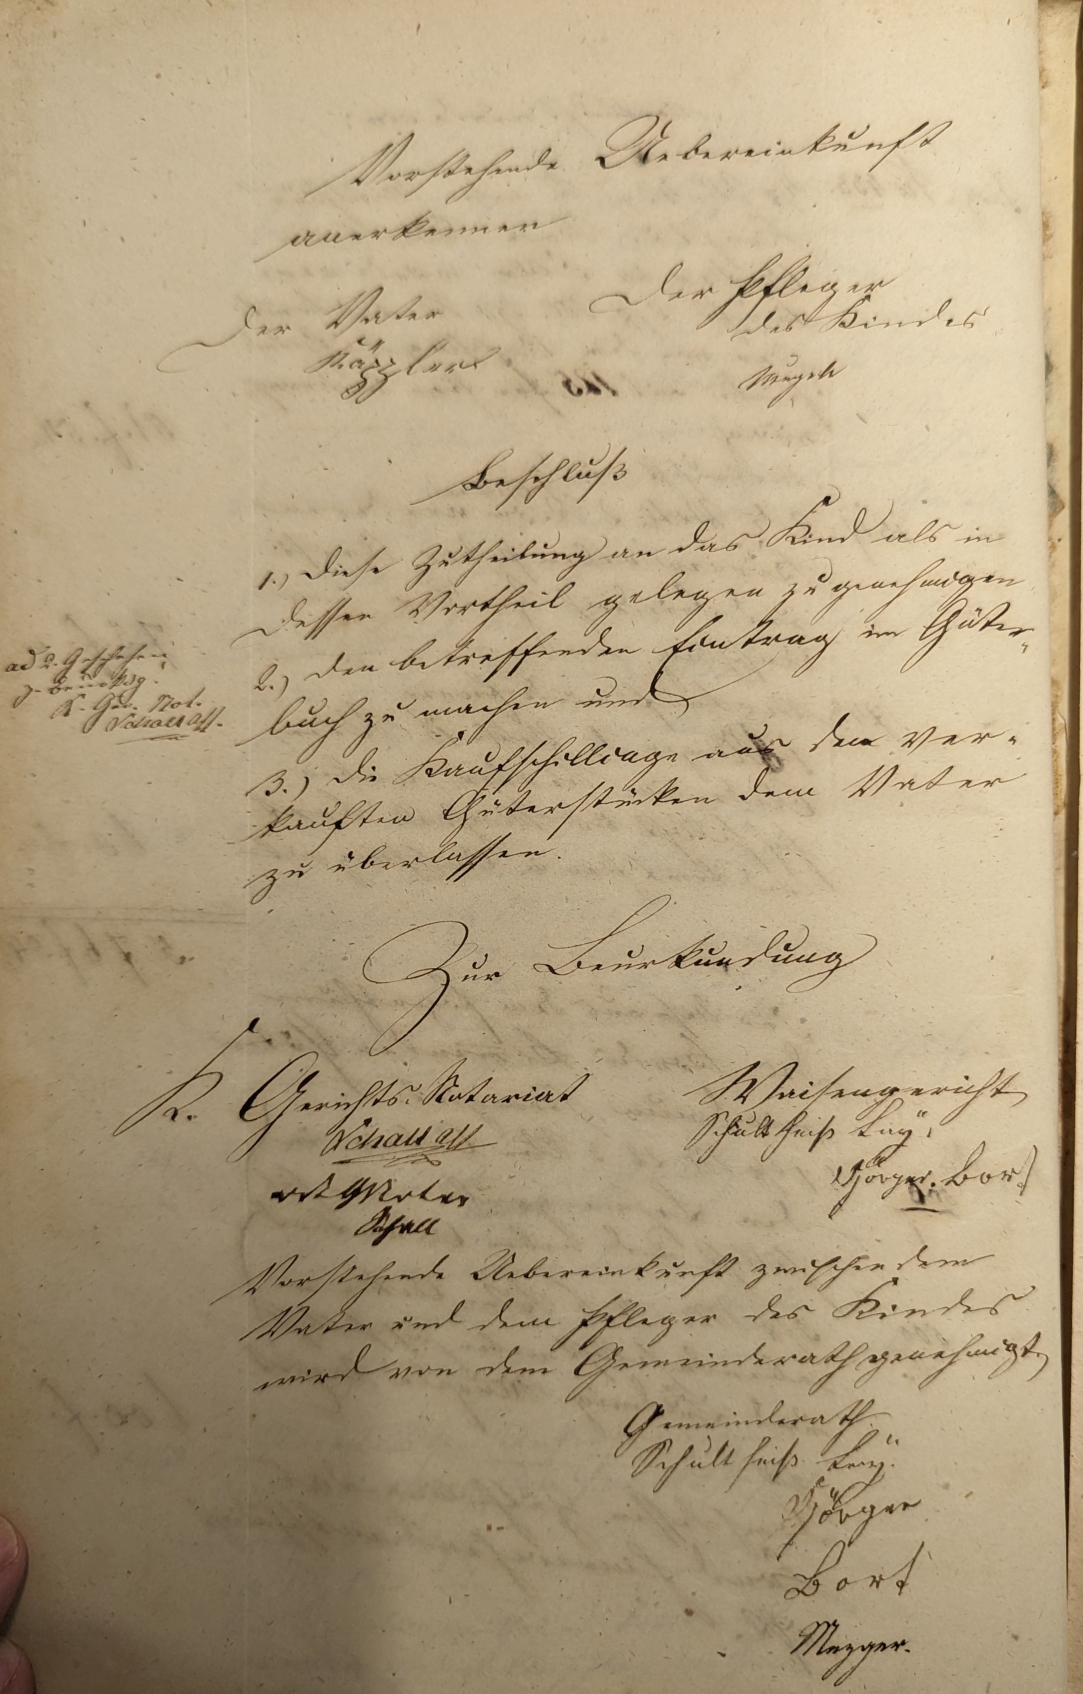 Vorstehende Uebereinkunft
anerkennen
Der Vater
Käppler
Der Pfleger
des Kindes
Beschluß
1.) Diese Zutheilung an das Kind als in
dessen Vortheil gelegen zu genehmigen
2.) den betreffenden Eintrag im Güter-
buch zu machen und
3.) die Kaufschillinge aus den ver-
kauften Güterstücken dem Vater
zu überlassen.
ad 2. Geschehen
K. Ger. Not.
Zur Beurkundung
K. Gerichts-Notariat
Waisengericht
Schultheiß Lay.
Jörger. Bort
Vorstehende Uebereinkunft zwischen dem
Vater und dem Pfleger des Kindes
wird von dem Gemeinderath genehmigt.
Gemeinderath.
Schultheiß Lay.
Jörger
Bort
Mezger.